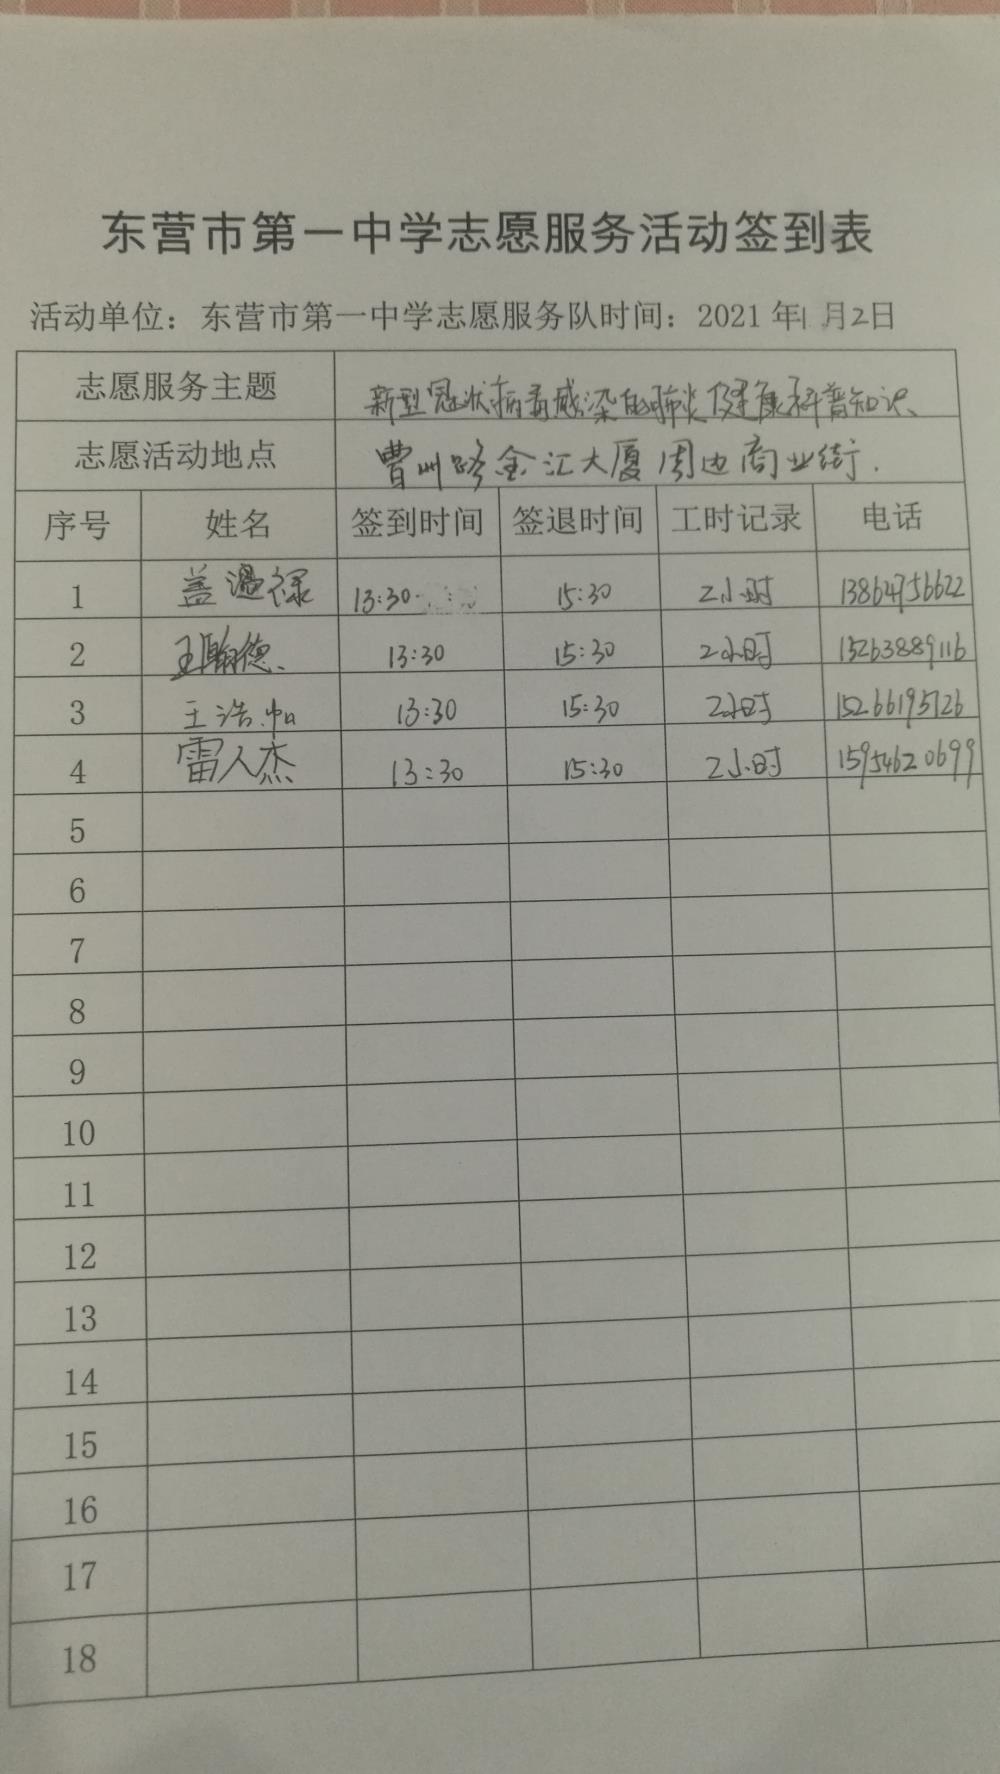 东营市第一中学志愿服务活动签到表
活动单位：东营市第一中学志愿服务队时间：2021年1月2日
志愿服务主题 新型冠状病毒感染的肺炎健康科普知识、
志愿活动地点 曹州路金汇大厦周边商业街.
序号 姓名 签到时间 签退时间 工时记录 电话
1 盖遇禄 13:30 15:30 2小时 13864756622
2 王翰德、 13:30 15:30 2小时 15263889116
3 王浩帆 13:30 15:30 2小时 15266195726
4 雷人杰 13:30 15:30 2小时 15954620699
5
6
7
8
9
10
11
12
13
14
15
16
17
18